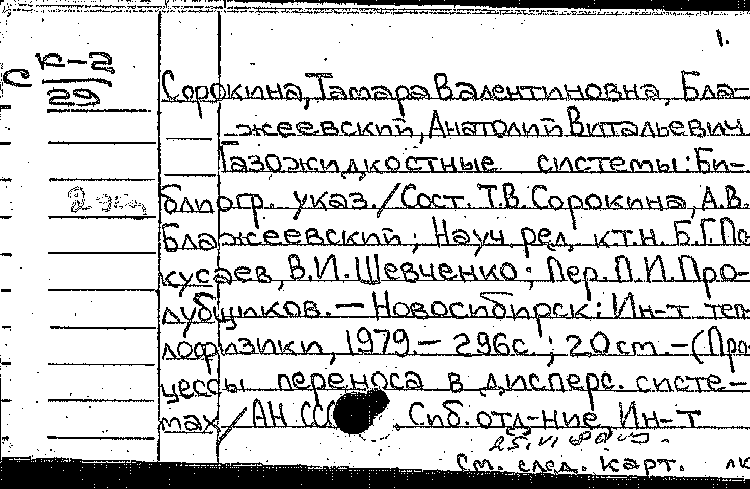 1.
С Г-2
29
Сорокина, Тамара Валентиновна, Бла-
жеевский, Анатолий Витальевич
Газожидкостные системы: Би-
2 экз
блиогр. указ./Сост. Т.В. Сорокина, А.В.
Блажеевский; Науч. ред. к.т.н. Б.Г. По-
кусаев, В.И. Шевченко; Пер. П.И. Про-
лубщиков. — Новосибирск: Ин-т теп-
лофизики, 1979. — 296с.; 20см. — (Про-
цессы переноса в дисперс. систе-
мах/АН ССС . Сиб. отд-ние, Ин-т
См. след. карт.